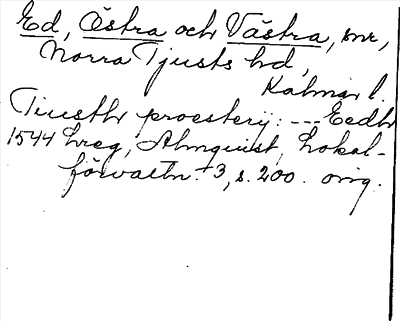 Ed, Östra och Västra, snr,
Norra Tjusts hd,
Kalmar l.
Tiusthr proesterij: --- Eedhr
1544 Lreg, Almquist, Lokal-
förvaltn. 3, s. 200. orig.